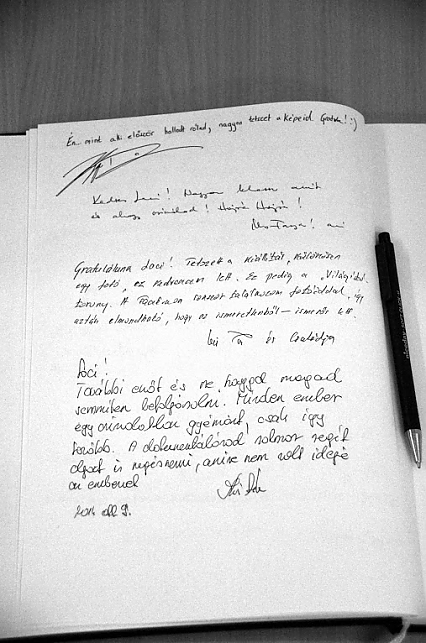 Én mint aki először hallott rólad, nagyon tetszet a képeid. Gratula! :)
Kedves Laci! Nagyon
és ahogy csinálod! Hajrá Hajrá!
Gratulálunk Laci! Tetszett a kiállítás, különösen
egy fotó, ez kedvencem lett. Ez pedig a „Világító-
torony". A Facebookon sokszor találkozom fotóiddal, így
aztán elmondható, hogy az ismeretlenből – ismerős lett.
és Családja
Laci!
További erőt és ne hagyd magad
semmiben befolyásolni. Minden ember
egy csiszolatlan gyémánt, csak így
tovább. A dokumentálásod sokszor segít
olyat is megismerni, amire nem volt ideje
az embernek
2014